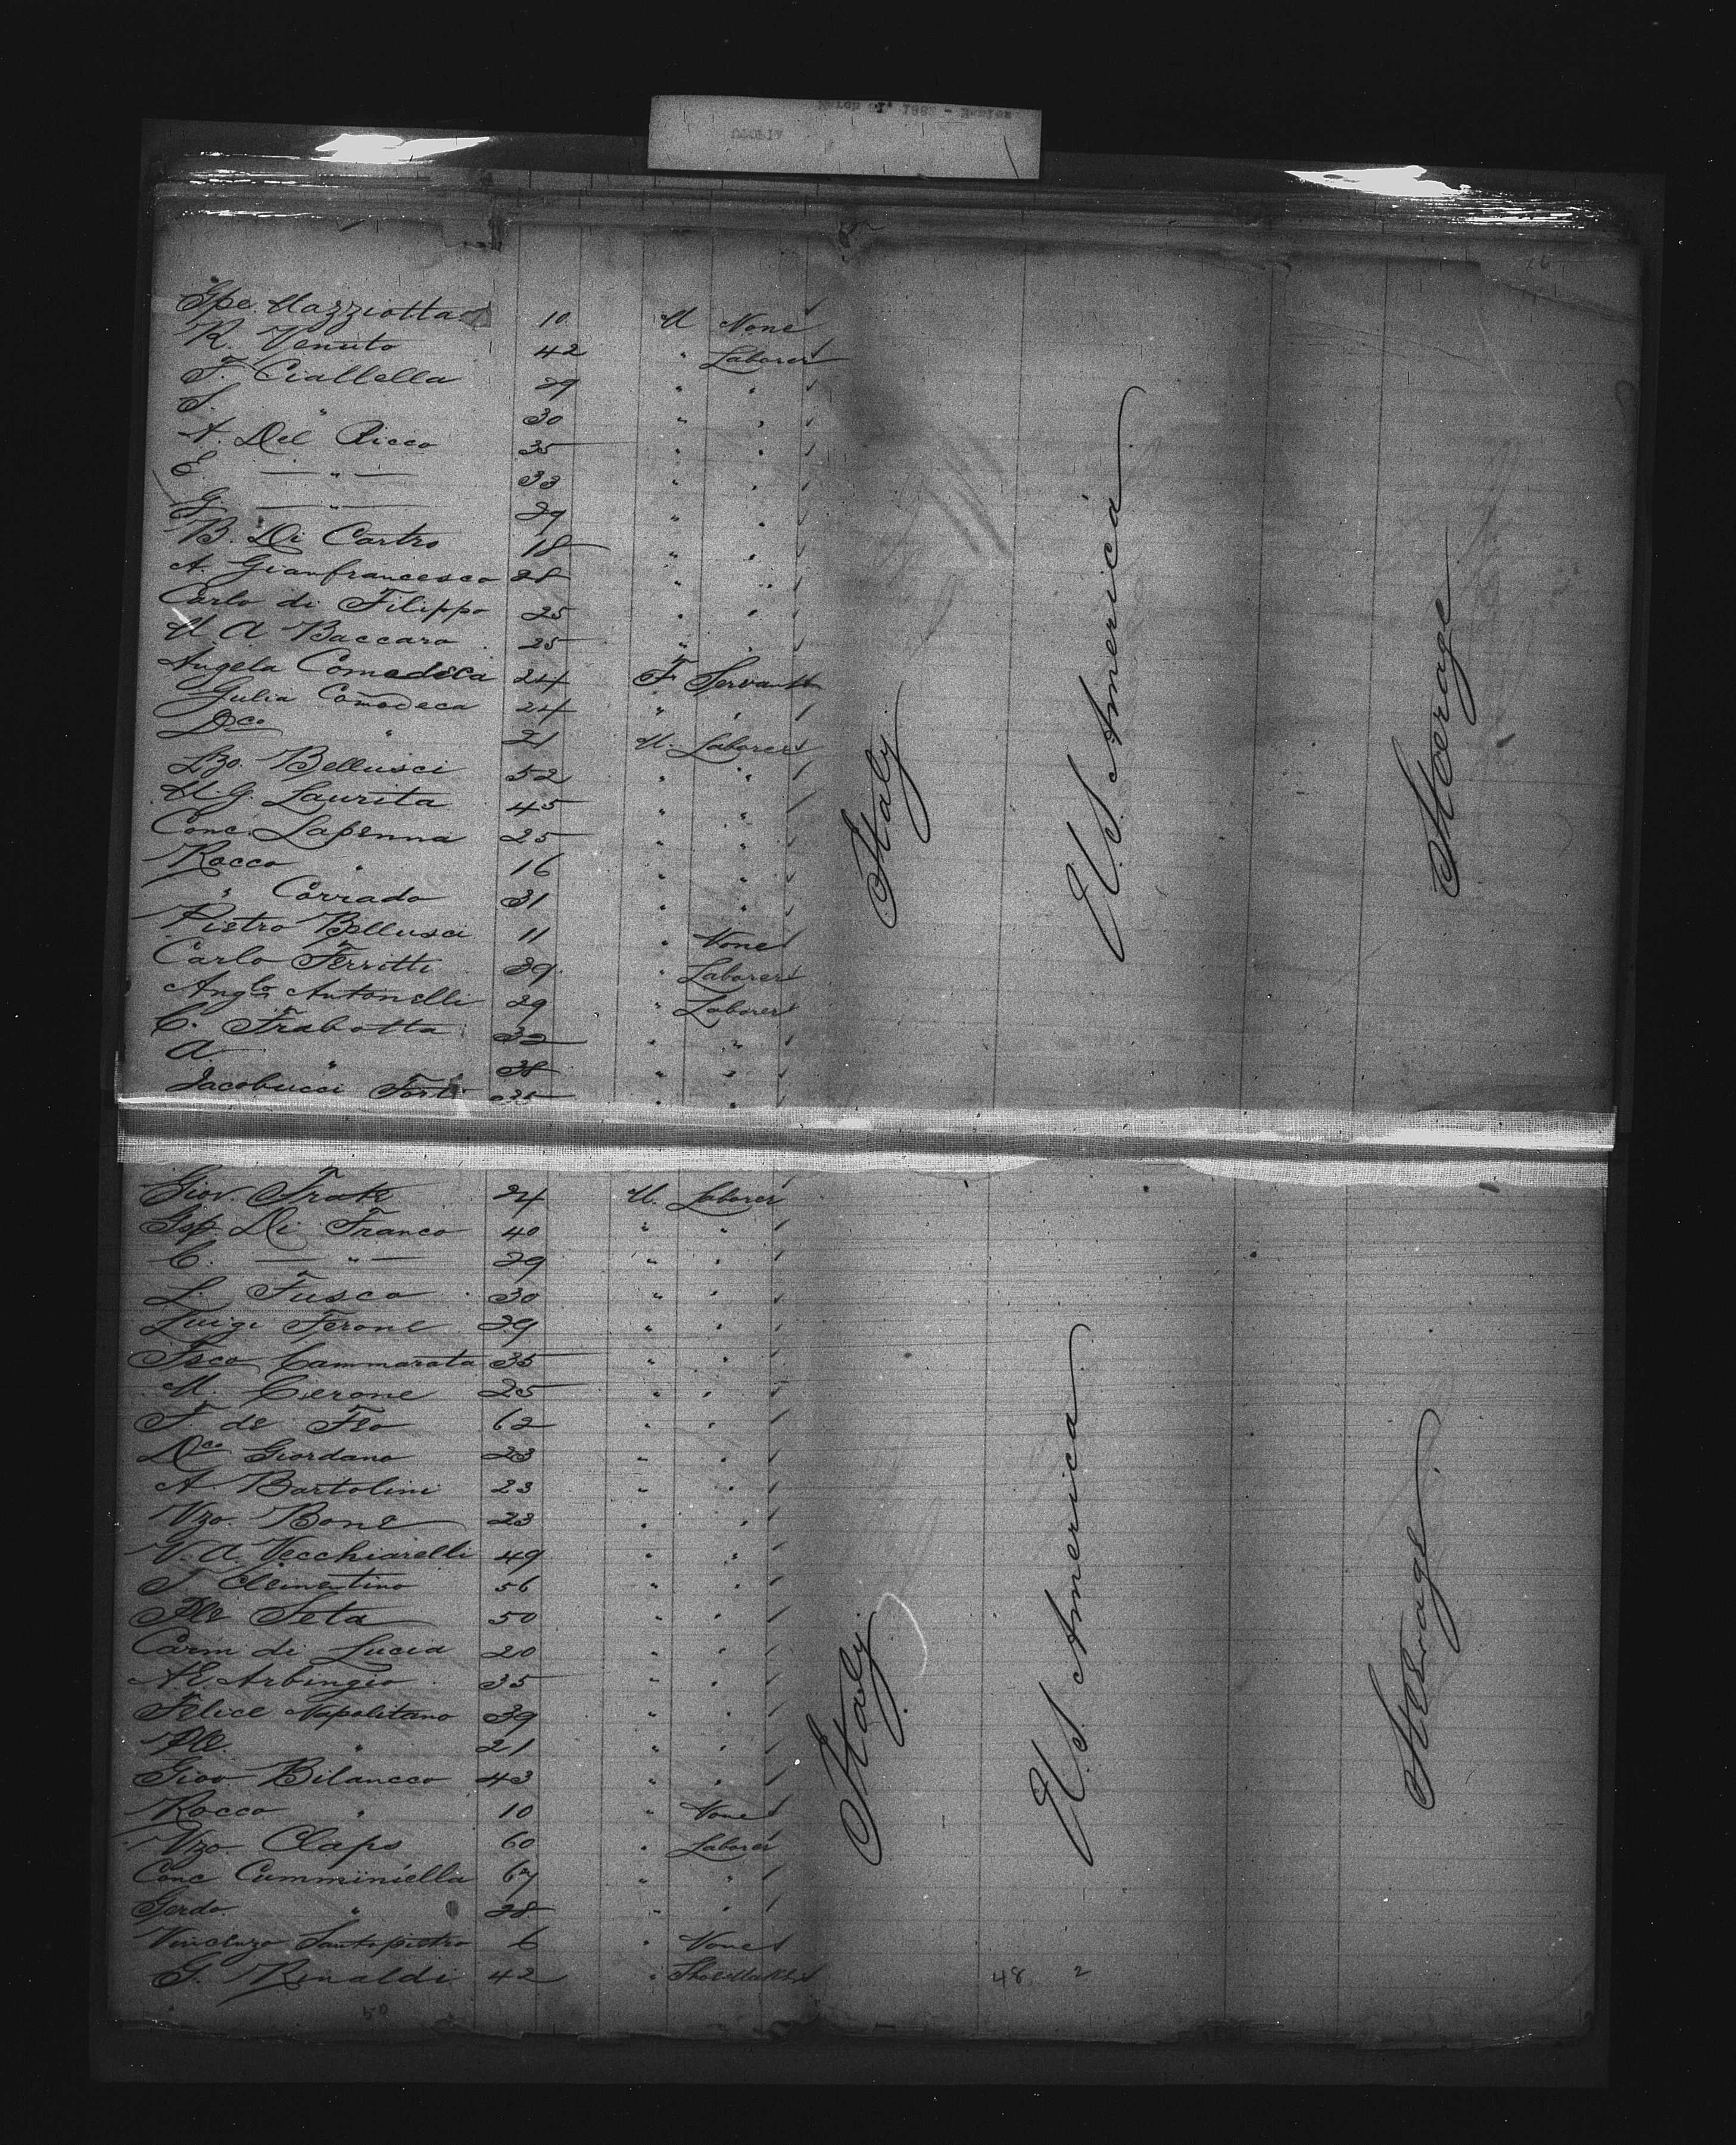 Gpe. Mazziotta 10 M None
R. Venuto 42 " Laborer
F. Ciallella 29 " "
S. " 30 " "
A. Del Ricco 35 " "
E. — " — 33 " "
G. — " — 29 " "
B. Di Castro 18 " "
A. Gianfrancesco 28 " "
Carlo di Filippo 25 " "
M. A Baccaro 25 " "
Angela Comodeca 24 F Servant
Gulia Comodeca 24 " "
Dco " 21 M. Laborer
Lzo. Bellusci 52 " "
M. G. Laurita 45 " "
Conc. Lapenna 25 " "
Rocco " 16 " "
" Corrado 31 " "
Pietro Bellusci 11 " None
Carlo Ferritti 39 " Laborer
Anglo Antonelli 29 " Laborer
C. Frabotta 32 " "
A " 38 " "
Jacobucci 35 " "
Italy
U.S. America
Steerage
Giov. 24 M. Laborer
Gsp. Di Franco 40 " "
C. — " — 29 " "
L. Fusco 30 " "
Luigi Ferone 29 " "
Fsco Cammarata 35 " "
M. Cerone 25 " "
F. de Feo 62 " "
Dco Giordano 23 " "
A. Bartolini 23 " "
Vzo. Bone 23 " "
V. A. Vecchiarelli 49 " "
F. Clementino 56 " "
Ple Seta 50 " "
Carm di Lucia 20 " "
A. E. Arbingio 35 " "
Felice Napolitano 39 " "
Ple. " 21 " "
Giov. Bilancco 43 " "
Rocco " 10 " None
Vzo. Claps 60 " Laborer
Conc Cumminiella 67 " "
Gerdo. " 28 " "
Vincenzo Santopietro 6 " None
G. Rinaldi 42 " ShoeMaker
Italy
U.S. America
Steerage
48 2
50